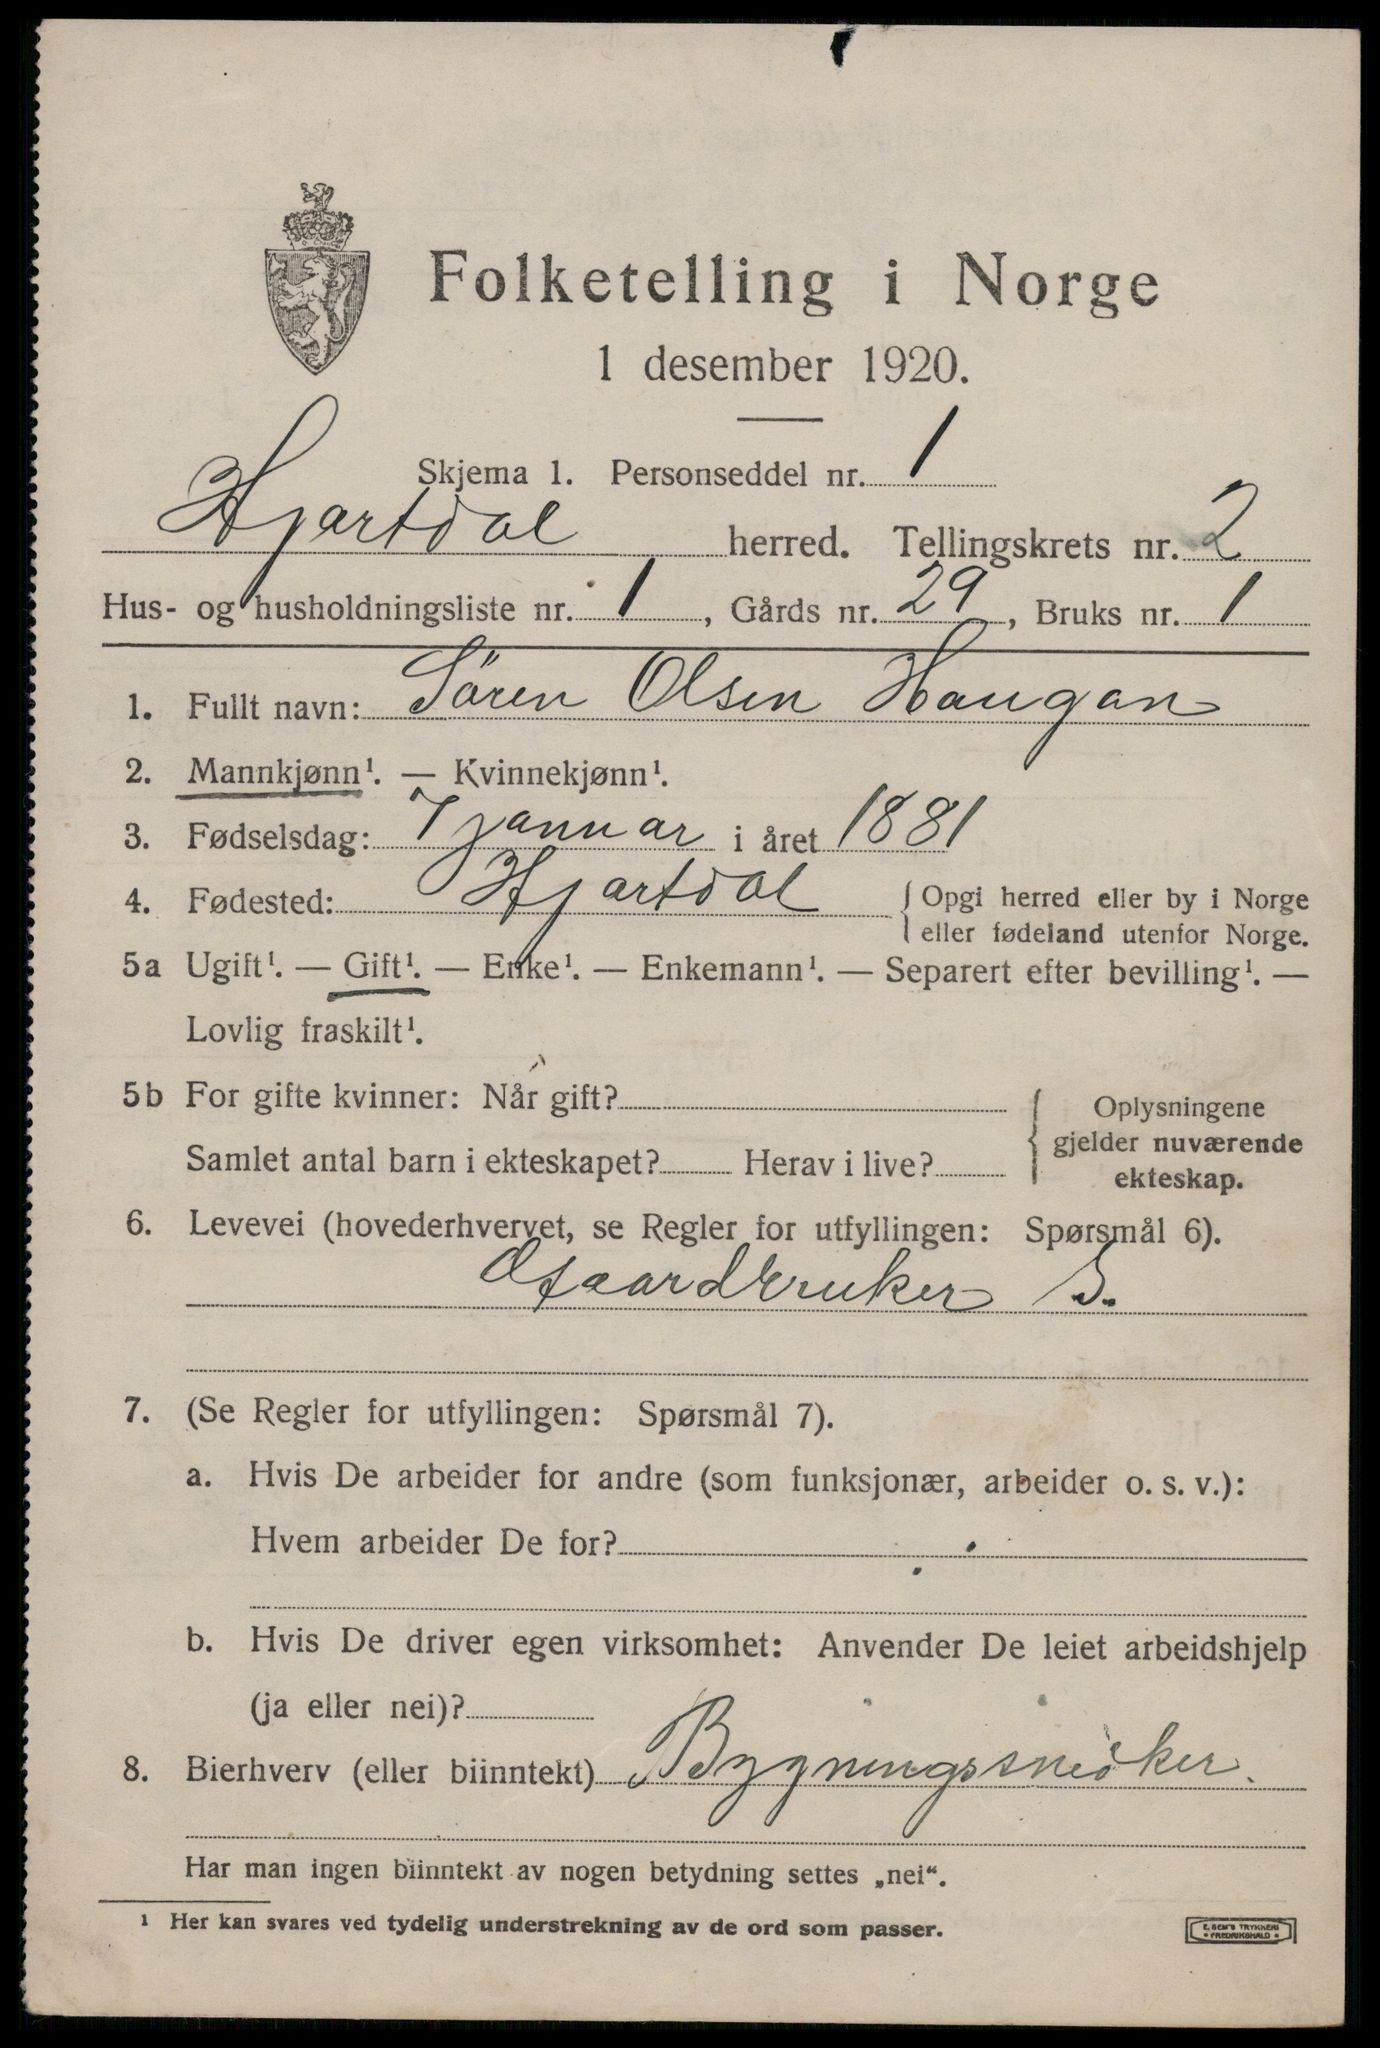 Folketelling i Norge
1 desember 1920.
Skjema 1. Personseddel nr. 1
Hjartdal herred. Tellingskrets nr. 2
Hus- og husholdningsliste nr. 1, Gårds nr. 29, Bruks nr. 1
1. Fullt navn: Sören Olsen Haugan
2. Mannkjønn¹. — Kvinnekjønn¹.
3. Fødselsdag: 7 januar i året 1881
4. Fødested: Hjartdal { Opgi herred eller by i Norge
eller fødeland utenfor Norge.
5a Ugift¹. — Gift¹. — Enke¹. — Enkemann¹. — Separert efter bevilling¹. —
Lovlig fraskilt¹.
5b For gifte kvinner: Når gift? { Oplysningene
gjelder nuværende
ekteskap.
Samlet antal barn i ekteskapet? Herav i live?
6. Levevei (hovederhvervet, se Regler for utfyllingen: Spørsmål 6).
Gaardbruker S.
7. (Se Regler for utfyllingen: Spørsmål 7).
a. Hvis De arbeider for andre (som funksjonær, arbeider o. s. v.):
Hvem arbeider De for?
b. Hvis De driver egen virksomhet: Anvender De leiet arbeidshjelp
(ja eller nei)?
8. Bierhverv (eller biinntekt) Bygningssnedker.
Har man ingen biinntekt av nogen betydning settes „nei“.
¹ Her kan svares ved tydelig understrekning av de ord som passer.
E. SEM'S TRYKKERI
• FREDRIKSHALD •